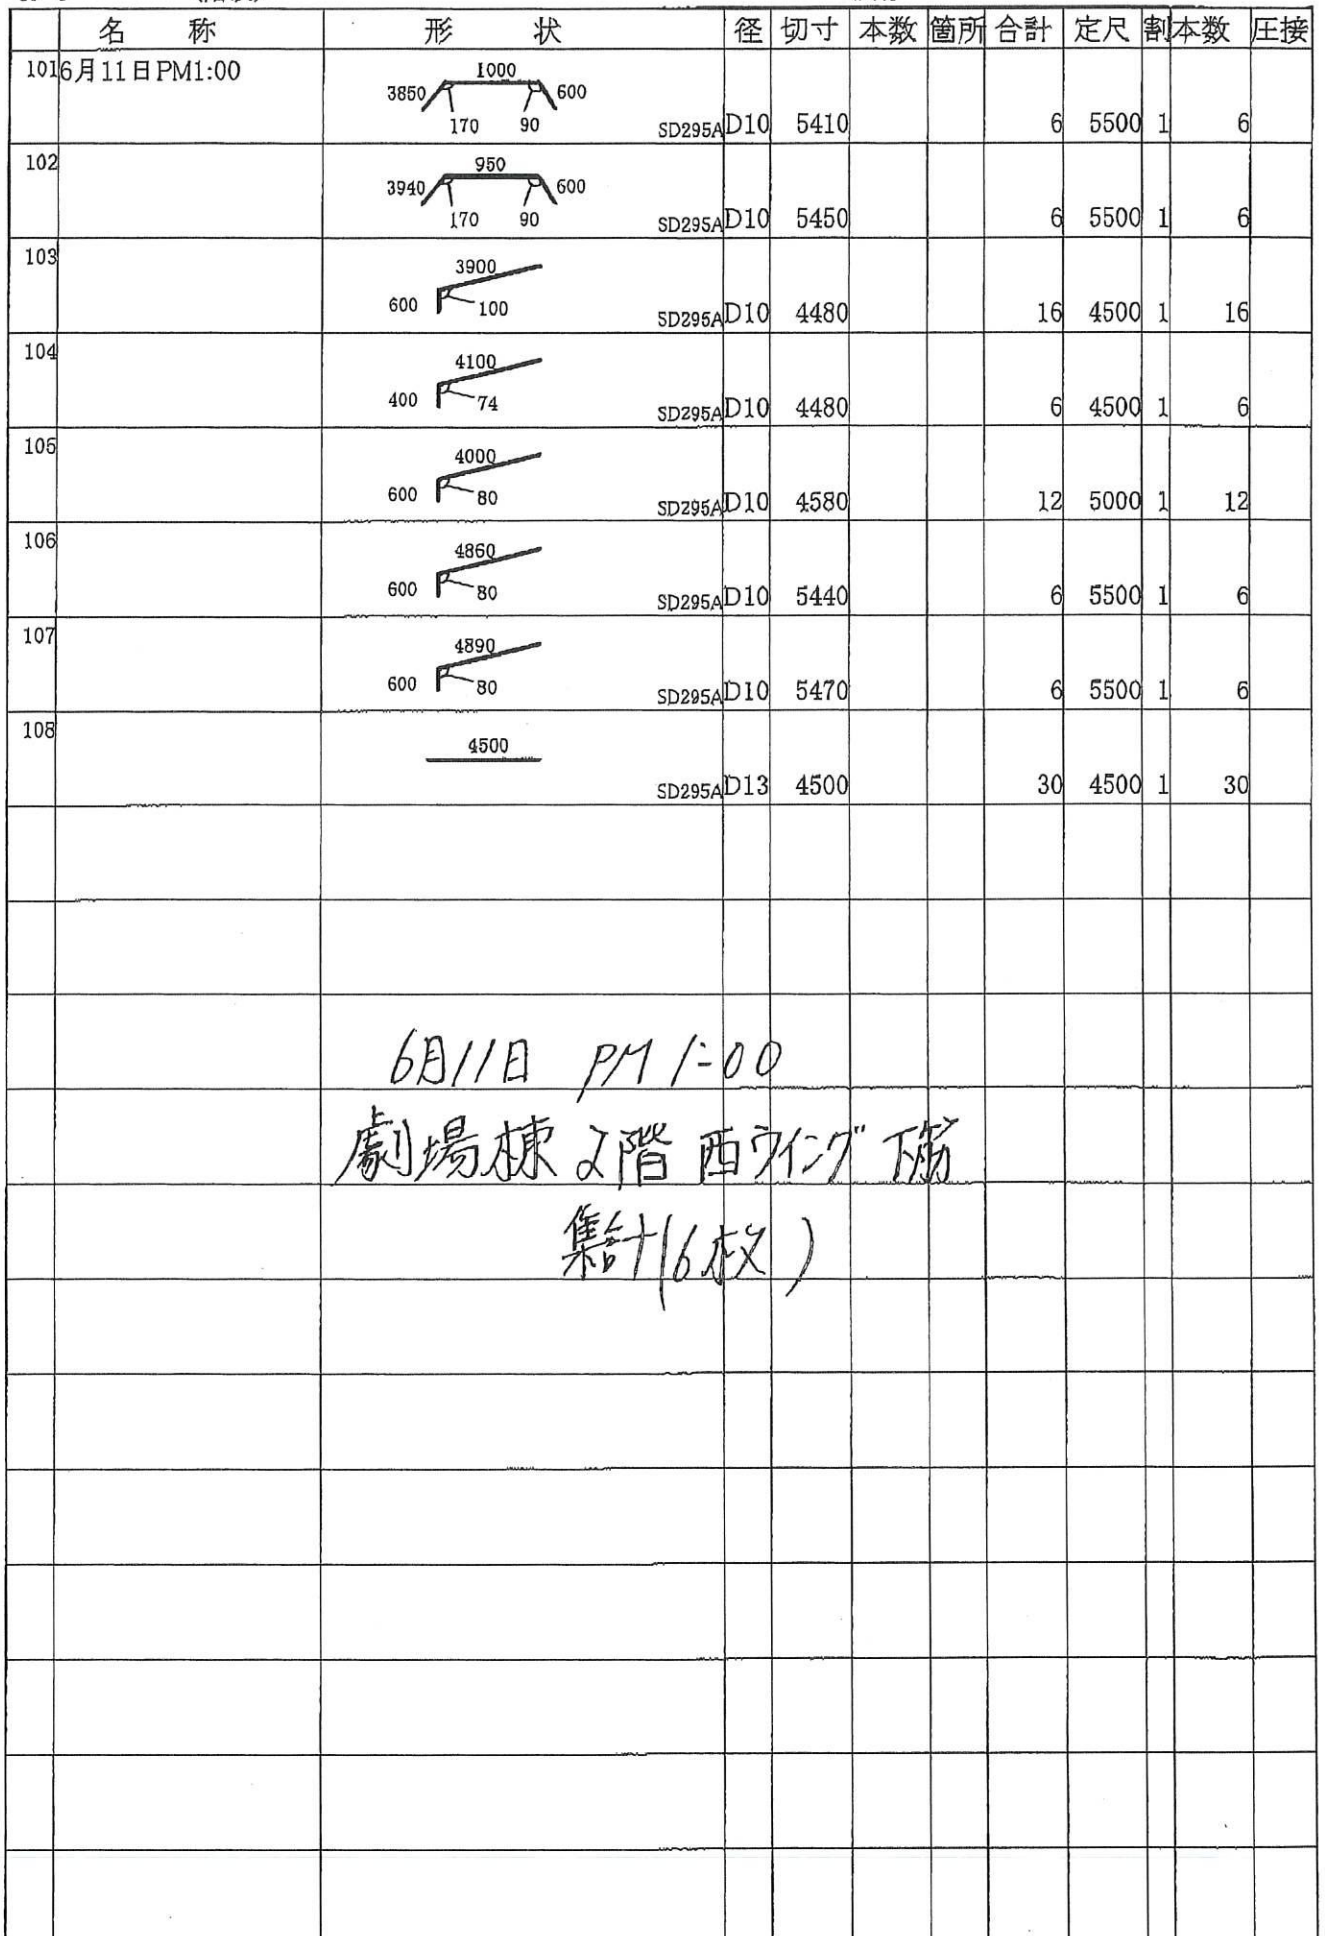 名 称 形 状 径 切寸 本数 箇所 合計 定尺 割 本数 圧接
101 6月11日PM1:00
1000
3850 600
170 90
SD295A D10 5410 6 5500 1 6
102
950
3940 600
170 90
SD295A D10 5450 6 5500 1 6
103
3900
600 100
SD295A D10 4480 16 4500 1 16
104
4100
400 74
SD295A D10 4480 6 4500 1 6
105
4000
600 80
SD295A D10 4580 12 5000 1 12
106
4860
600 80
SD295A D10 5440 6 5500 1 6
107
4890
600 80
SD295A D10 5470 6 5500 1 6
108
4500
SD295A D13 4500 30 4500 1 30
6月11日 PM 1:00
劇場棟 2階 西ウイング 下筋
集計(6枚)